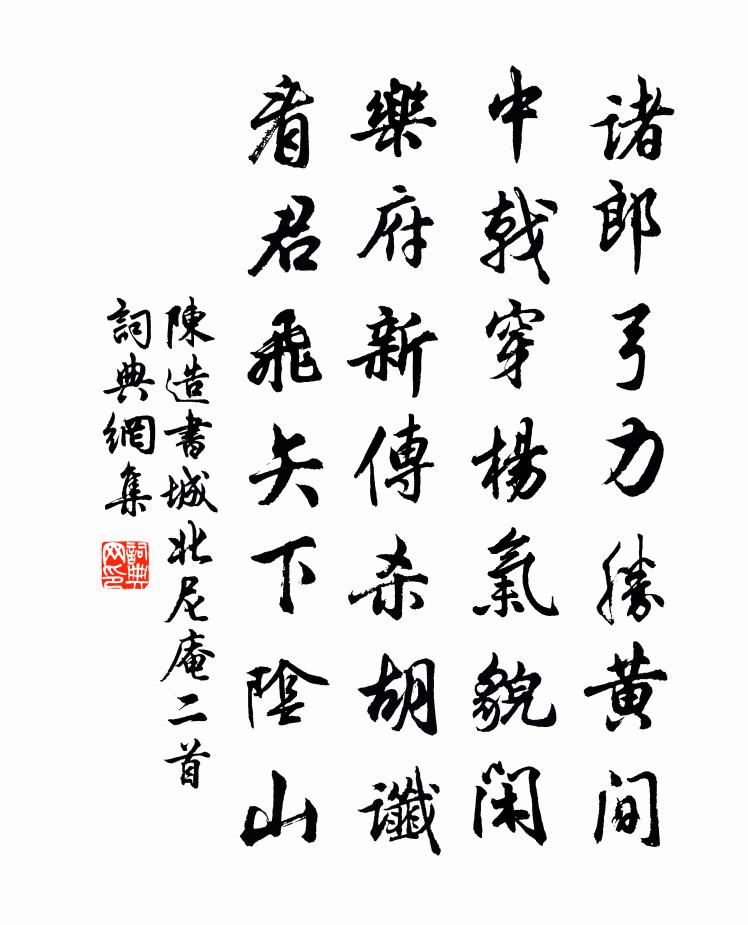 诸郎弓力勝黄间
中戟穿楊氣貌闲
樂府新傳杀胡谶
看君飛矢下陰山
陳造書城北尼庵二首
詞典網集
詞典网印